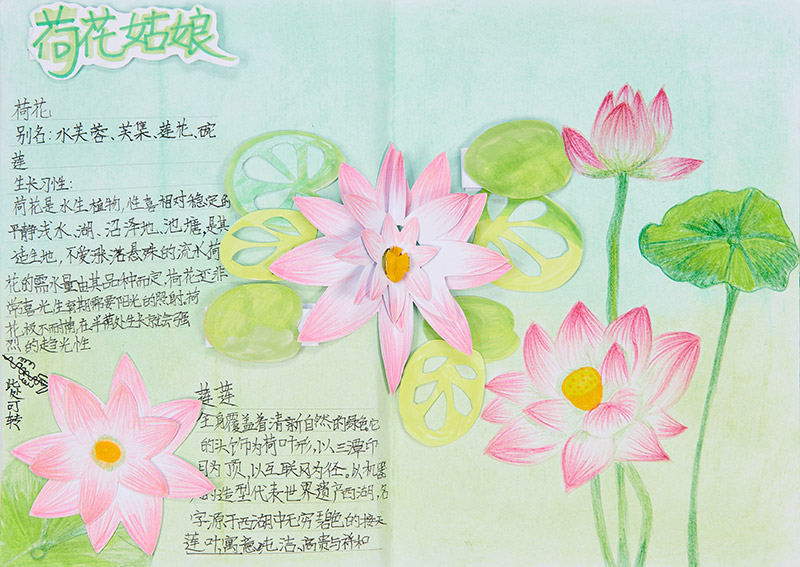 荷花姑娘
荷花
别名:水芙蓉、芙蕖、莲花、碗
莲
生长习性:
荷花是水生植物,性喜相对稳定的
平静浅水、湖、沼泽地、池塘,是其
适生地,不爱涨落悬殊的流水荷
花的需水量由其品种而定,荷花还非
常喜光,生育期需要阳光的照射,荷
花极不耐阴,在半荫处生长就会强
烈的趋光性
皆可转
莲莲
全身覆盖着清新自然的绿色它
的头饰为荷叶形,以三潭印
月为顶,以互联网为径。以机器
的造型代表世界遗产西湖,名
字源于西湖中无穷碧色的接天
莲叶,寓意纯洁、高贵与祥和